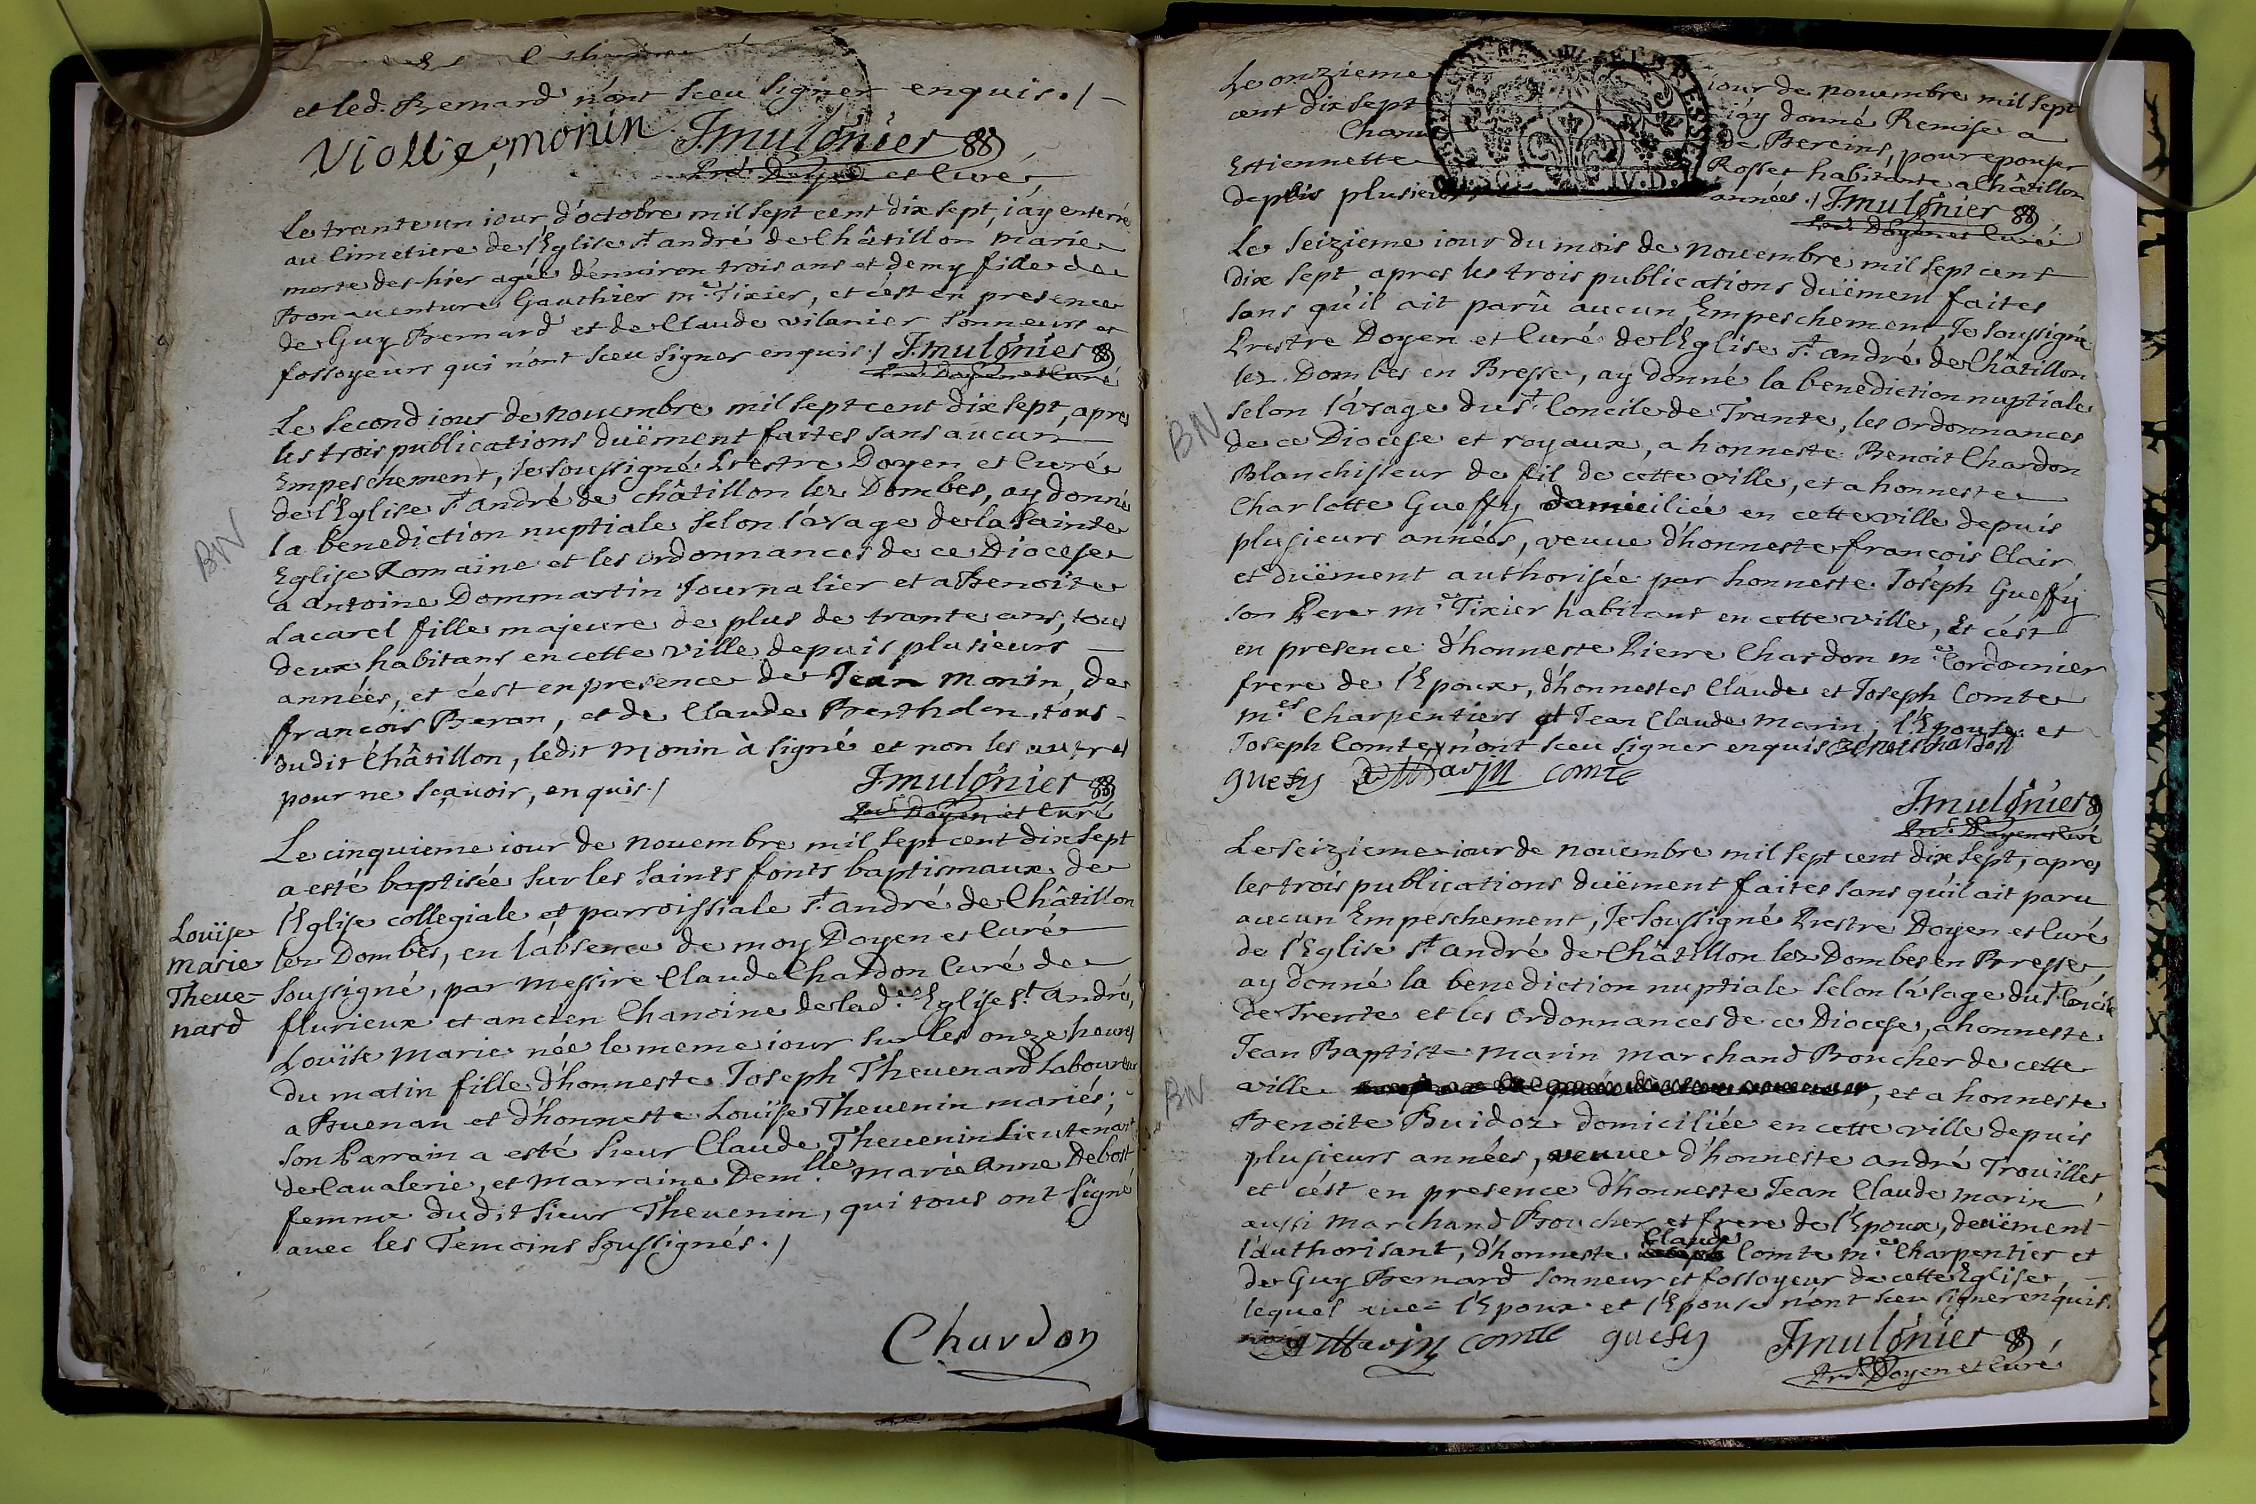 et led. Bernard n'ont sceu signer enquis./.
Violle, monin J. mulonier
Pre. Doyen et Curé
Le trante un iour d'octobre mil sept cent dix sept, i'ay enterré
au Cimetiere de l'Eglise St. andré de Châtillon Marie
morte des-hier agée d'enuiron trois ans et demy fille de
Bonauenture Gauthier me. Tixier, et c'est en presence
de Guy Bernard et de Claude vilanier sonneurs et
fossoyeurs qui n'ont sceu signer enquis./ J. mulonier
Pre. Doyen et Curé
Le second iour de nouembre mil sept cent dix sept, apres
les trois publications duëment faites sans aucun
Empeschement, Je soussigné Prestre Doyen et Curé
de l'Eglise St. André de châtillon lez Dombes, ay donné
la benediction nuptiale selon l'vsage de la sainte
BN
Eglise Romaine et les ordonnances de ce Diocese
a antoine Dommartin Journalier et a Benoite
Lacarel fille majeure de plus de trante ans, tous
deux habitans en cette ville depuis plusieurs
années, et c'est en presence de Jean monin, de
francois Beran, et de Claude Berthelon, tous
dudit Châtillon, ledit monin à signé et non les autres
pour ne sçauoir, enquis./ J. mulonier
Pre. Doyen et Curé
Le cinquieme iour de nouembre mil sept cent dix sept
a esté baptisée sur les saints fonts baptismaux de
l'Eglise collegiale et parroissiale St. andré de Châtillon
lez Dombes, en l'absence de moy Doyen et Curé
Louïse
marie
Theue-
nard
soussigné, par messire Claude Chardon Curé de
flurieux et ancien Chanoine de lad. Eglise St. André,
Louïse Marie née le meme iour sur les onze heures
du matin fille d'honneste Joseph Theuenard Laboureur
a Buenan et d'honneste Louïse Theuenin mariés;
son Parrain a esté sieur Claude Theuenin Lieutenant
de Caualerie, et Marraine Demlle. marie Anne Debost
femme dudit sieur Theuenin, qui tous ont signé
avec les Temoins soussignés./
Chardon
Le onzieme iour de nouembre mil sept
cent dix sept i'ay donné Remise a
de Bereins, pour epouser
Estiennette Rosset habitante a Châtillon
depuis plusieurs années./ J. mulonier
Pre. Doyen et Curé
Le seizieme iour du mois de nouembre mil sept cent
dix sept apres les trois publications duëment faites
sans qu'il ait parû aucun Empeschement, Je soussigné
Prestre Doyen et Curé de l'Eglise St. andré de Châtillon
lez Dombes en Bresse, ay donné la benediction nuptiale
BN
selon l'vsage du St. Concile de Trante, les ordonnances
de ce Diocese et royaux, a honneste Benoit Chardon
Blanchisseur de fil de cette ville, et a honneste
Charlotte Gueffy domiciliée en cette ville depuis
plusieurs années, veuue d'honneste francois Clair
et duëment authorisée par honneste Joseph Gueffy
son Pere me. Tixier habitant en cette ville, Et c'est
en presence d'honneste Pierre Chardon me. Cordonnier
frere de l'Epoux, d'honnestes Claude et Joseph Comte
mes. Charpentiers et Jean Claude Marin, l'Epouse et
Joseph Comte, n'ont sceu signer enquis benoit chardon
guefy Marin comte
J. mulonier
Pre. Doyen et Curé
Le seizieme iour de nouembre mil sept cent dix sept, apres
les trois publications duëment faites sans qu'il ait paru
aucun Empeschement, Je soussigné Prestre Doyen et Curé
de l'Eglise St. André de Châtillon lez Dombes en Bresse
ay donné la benediction nuptiale selon l'vsage du St. Concile
de Trente et les ordonnances de ce Diocese, a honneste
Jean Baptiste Marin marchand Boucher de cette
BN
ville, et a honneste
Benoite Buidoz domiciliée en cette ville depuis
plusieurs années, veuue d'honneste andré Trouïllet,
et c'est en presence d'honneste Jean Claude Marin
aussi marchand Boucher et frere de l'Epoux, deuëment
l'authorisant, d'honneste Claude Comte me. Charpentier et
de Guy Bernard sonneur et fossoyeur de cette Eglise,
lequel avec l'Epoux et l'Epouse n'ont sceu signer enquis.
Marin comte guefy J. mulonier
Pre. Doyen et Curé